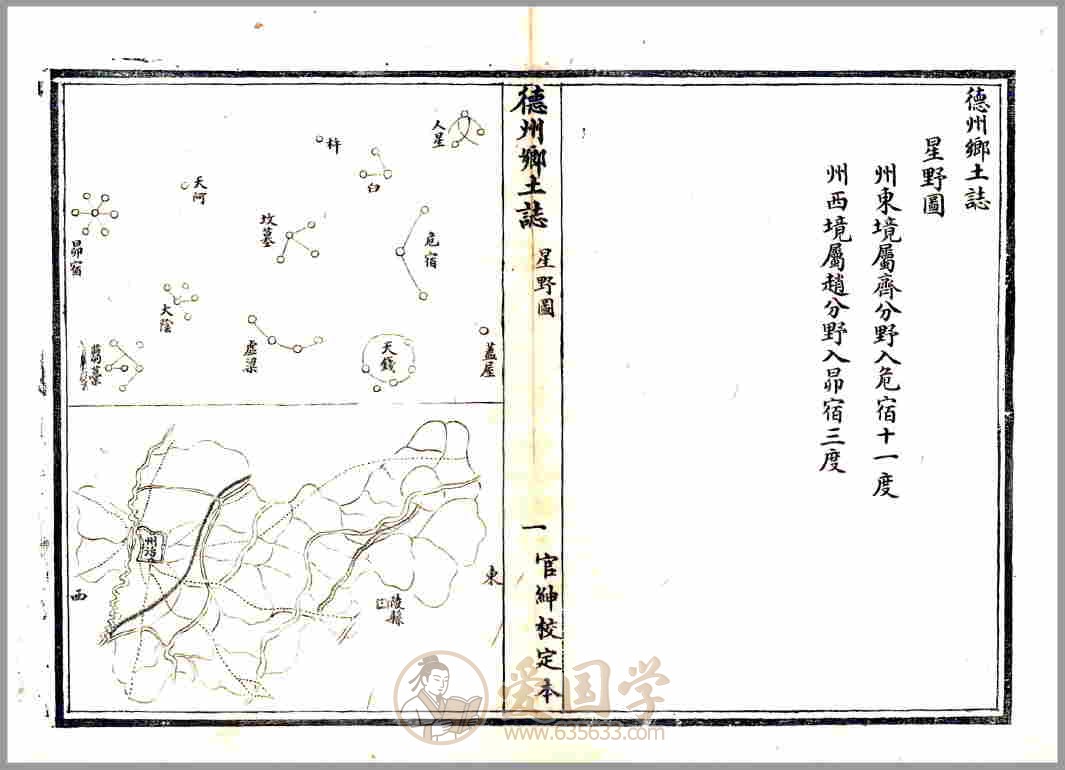 德州鄉土誌
星野圖
州東境屬齊分野入危宿十一度
州西境屬趙分野入昴宿三度
德州鄉土誌
星野圖
一
官紳校定本
人星
杵
臼
天河
危宿
墳墓
昴宿
大陰
蓋屋
天錢
虛梁
芻藁
州治
東
西
陵縣
爱国学
www.635633.com